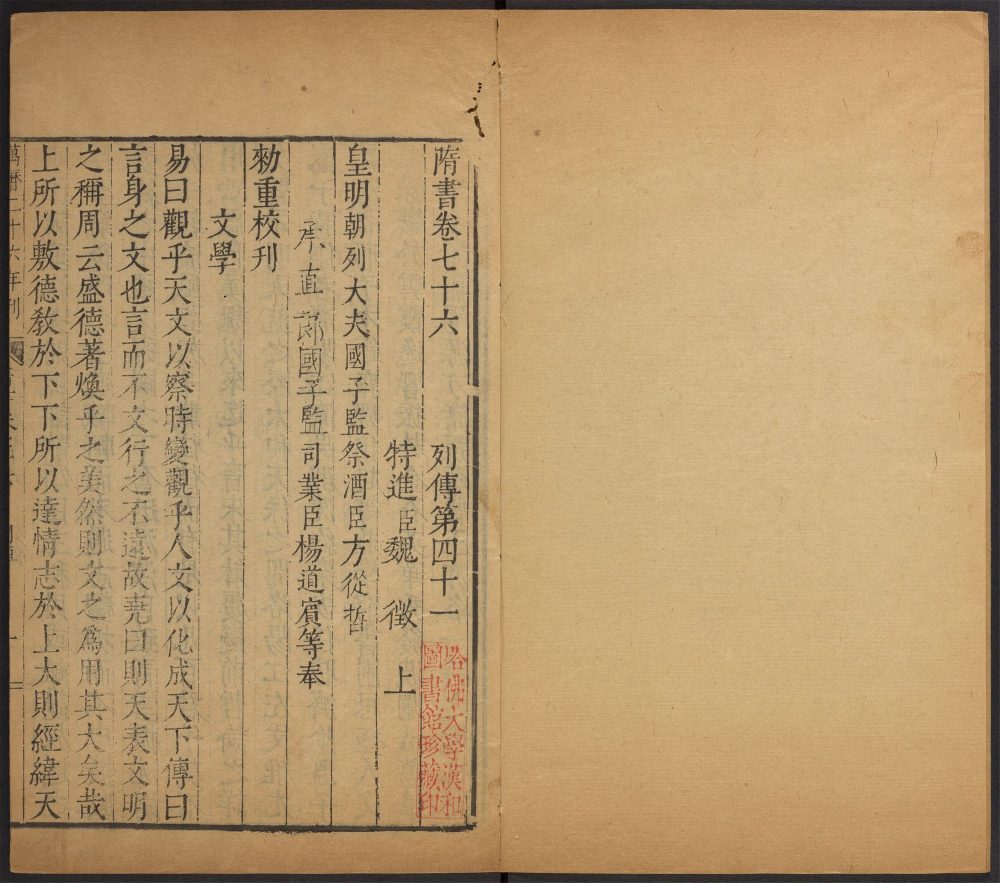 隋書卷七十六　列傳第四十一
特進臣魏徵上
皇明朝列大夫國子監祭酒臣方從哲
承直郎國子監司業臣楊道賓等奉
勑重校刊
文學
易曰觀乎天文以察時變觀乎人文以化成天下傳曰
言身之文也言而不文行之不遠故堯曰則天表文明
之稱周云盛德著煥乎之美然則文之為用其大矣哉
上所以敷德教於下下所以達情志於上大則經緯天
萬曆二十六年刊
塔佛大學漢和
圖書館珍藏印